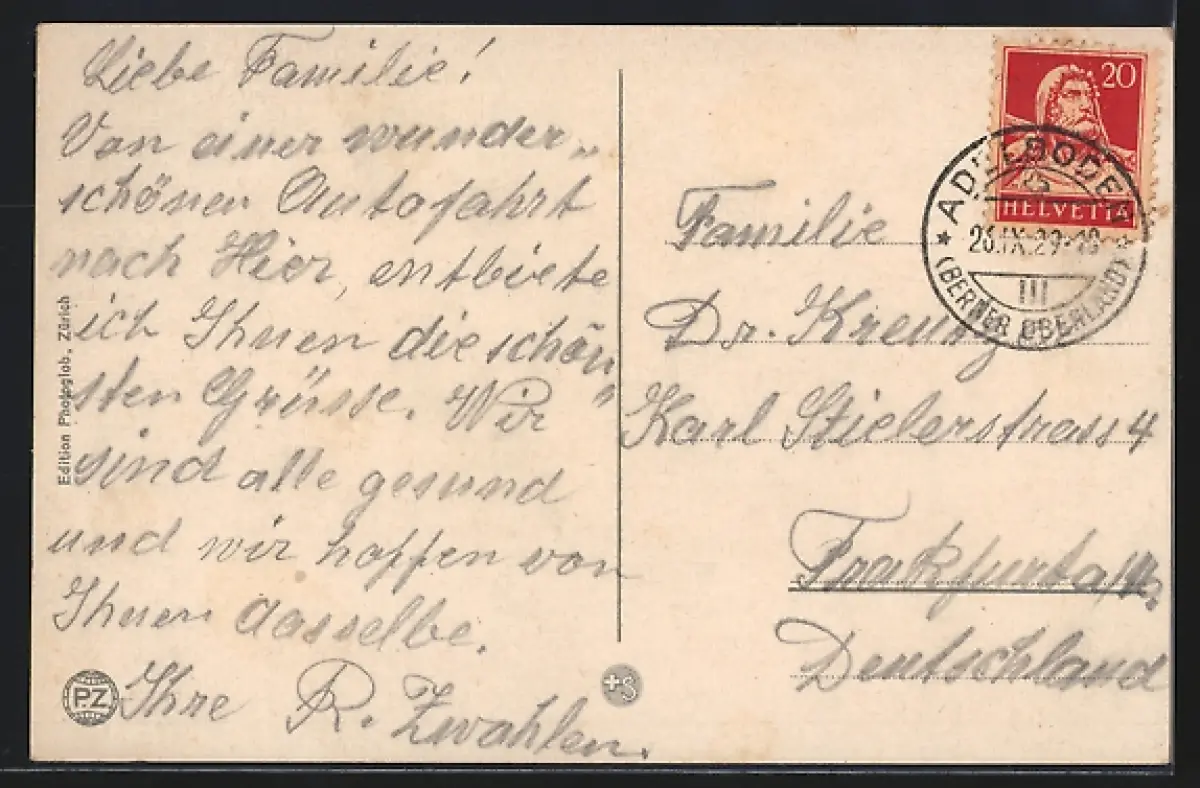 Liebe Familie!
Von einer wunder„
schönen Autofahrt
nach Hier, entbiete
ich Ihnen die schön„
sten Grüsse. Wir
sind alle gesund
und wir hoffen von
Ihnen dasselbe.
Ihre R. Zwahlen.
Edition Photoglob, Zürich
PZ
+S
20
HELVETIA
ADELBODEN
26.IX.29-18
III
(BERNER OBERLAND)
Familie
Dr. Kreuz
Karl Stielerstrass 4
Frakfurta/M.
Deutschland